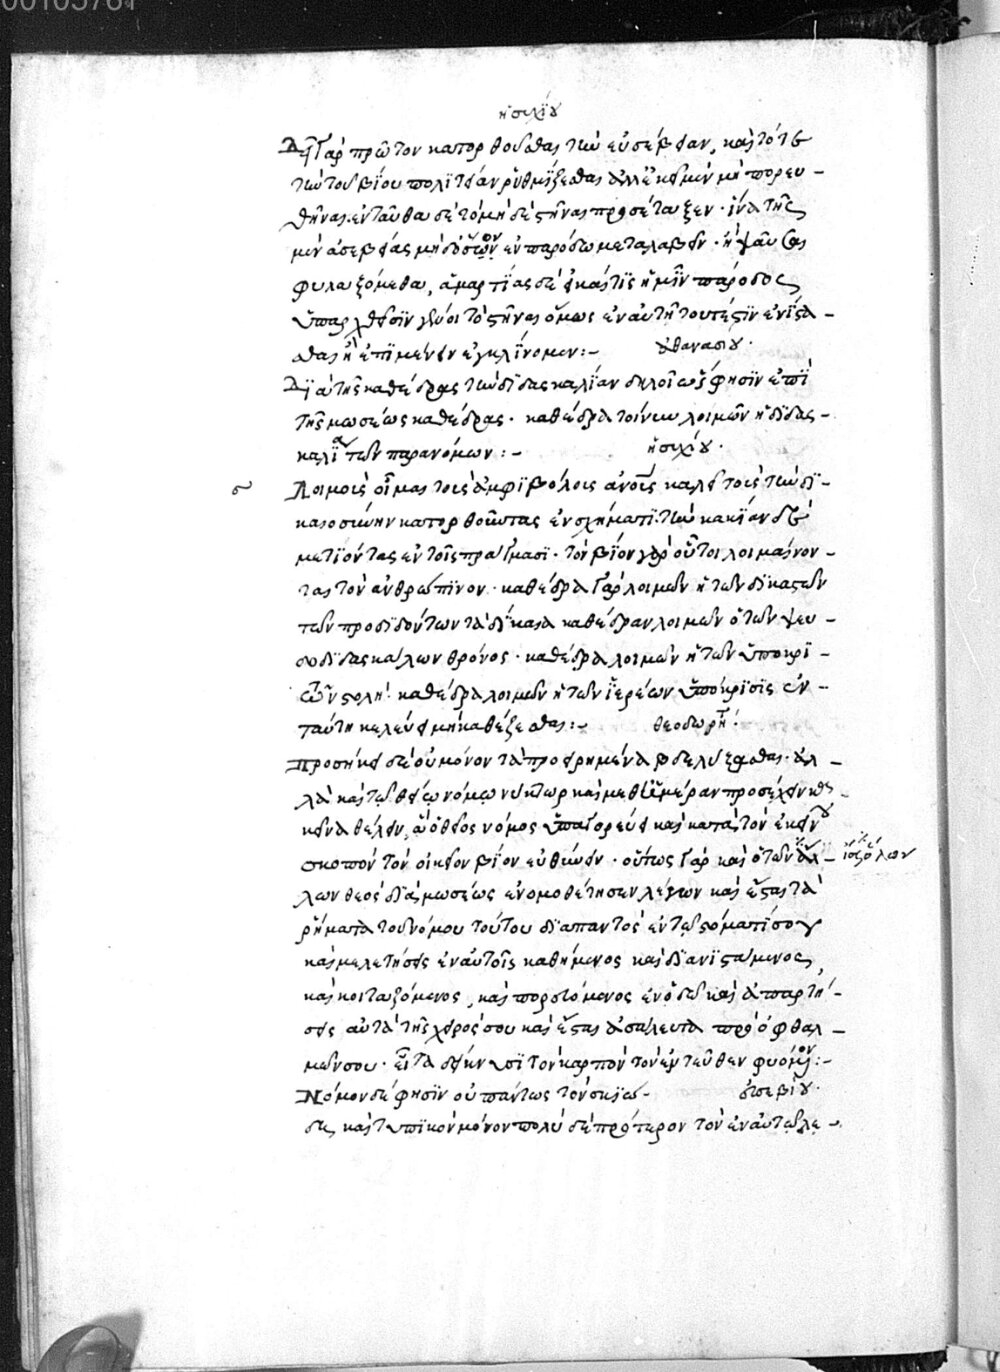 00103781
ἡσυχίου
Δεῖ γὰρ πρῶτον κατορθοῦσθαι τὴν εὐσέβειαν, καὶ τότε
τὴν τοῦ βίου πολιτείαν ῥυθμίζεσθαι ἀλλ' ἐκεῖ μὲν μὴ πορευ-
θῆναι, ἐνταῦθα δὲ τὸ μηδὲ στῆναι προσέταξεν · ἵνα τῆς
μὲν ἀσεβείας μηδ' ὅσον ἐν παρόδω μεταλαβεῖν · ἢ ψαῦσαι
φυλαξόμεθα, ἁμαρτίας δὲ ἡμῖν πάροδος
στῆναι ὅμως ἐν αὐτῆ τουτέστιν ἐνίστα-
σθαι ἢ ἐπιμένειν ἐγκλίνομεν :- ἀθανασίου ·
Διὰ τῆς καθέδρας τὴν διδασκαλίαν δηλοῖ ὥς φησιν ἐπὶ
τῆς μωσέως καθέδρας · καθέδρα τοίνυν λοιμῶν ἡ διδασ-
καλία τῶν παρανόμων :- ἡσυχίου ·
Λοιμοὺς οἶμαι τοὺς ἀμφιβόλοις ἀνους καλεῖ τοὺς τὴν δι-
καιοσύνην κατορθοῦντας ἐν σχήματι · τὴν κακίαν δὲ
μετιόντας ἐν τοῖς πράγμασι · τὸν βίον γὰρ οὗτοι λοιμαίνον-
ται τὸν ἀνθρώπινον · καθέδρα γὰρ λοιμῶν ἡ τῶν δικαστῶν
τῶν προδιδόντων τὰ δίκαια καθέδραν λοιμῶν ὁ τῶν ψευ-
δοδιδασκάλων θρόνος · καθέδρα λοιμῶν ἡ τῶν ὑποκρι-
τῶν στολή · καθέδρα λοιμῶν ἡ τῶν ἱερέων ὑπόκρισις ἐν
ταύτη κελεύει μὴ καθέζεσθαι :- θεοδωρήτου ·
Προσήκει δὲ οὐ μόνον τὰ προειρημένα βδελύξασθαι · ἀλ-
λὰ καὶ τῶ θείω νόμω νύκτωρ καὶ μεθ' ἡμέραν προσέχειν κἀ-
κεῖνα θέλειν, ἃ ὁ θεῖος νόμος ὑπαγορεύει καὶ κατὰ τὸν ἐκείνου
σκοπὸν τὸν οἰκεῖον βίον εὐθύνειν · οὕτως γὰρ καὶ ὁ τῶν ὅλ-
λων θεὸς διὰ μωσέως ἐνομοθέτησεν λέγων καὶ ἔσται τὰ
ῥήματα τοῦ νόμου τούτου διαπαντὸς ἐν τῶ στόματί σου
καὶ μελετήσεις ἐν αὐτοῖς καθήμενος καὶ διανιστάμενος,
καὶ κοιταζόμενος, καὶ πορευόμενος ἐν ὁδῶ καὶ ἀπαρτή-
σεις αὐτὰ τῆς χειρός σου καὶ ἔσται ἀσάλευτα πρὸ ὀφθαλ-
μῶν σου · εἶτα δείκνυσι τὸν καρπὸν τὸν ἐντεῦθεν φυόμενον :-
Νόμον δέ φησιν οὐ πάντως τὸν σκιώ- εὐσεβίου ·
δη καὶ τυπικὸν μόνον πολὺ δὲ πρότερον τὸν ἐν αὐτῶ λε-